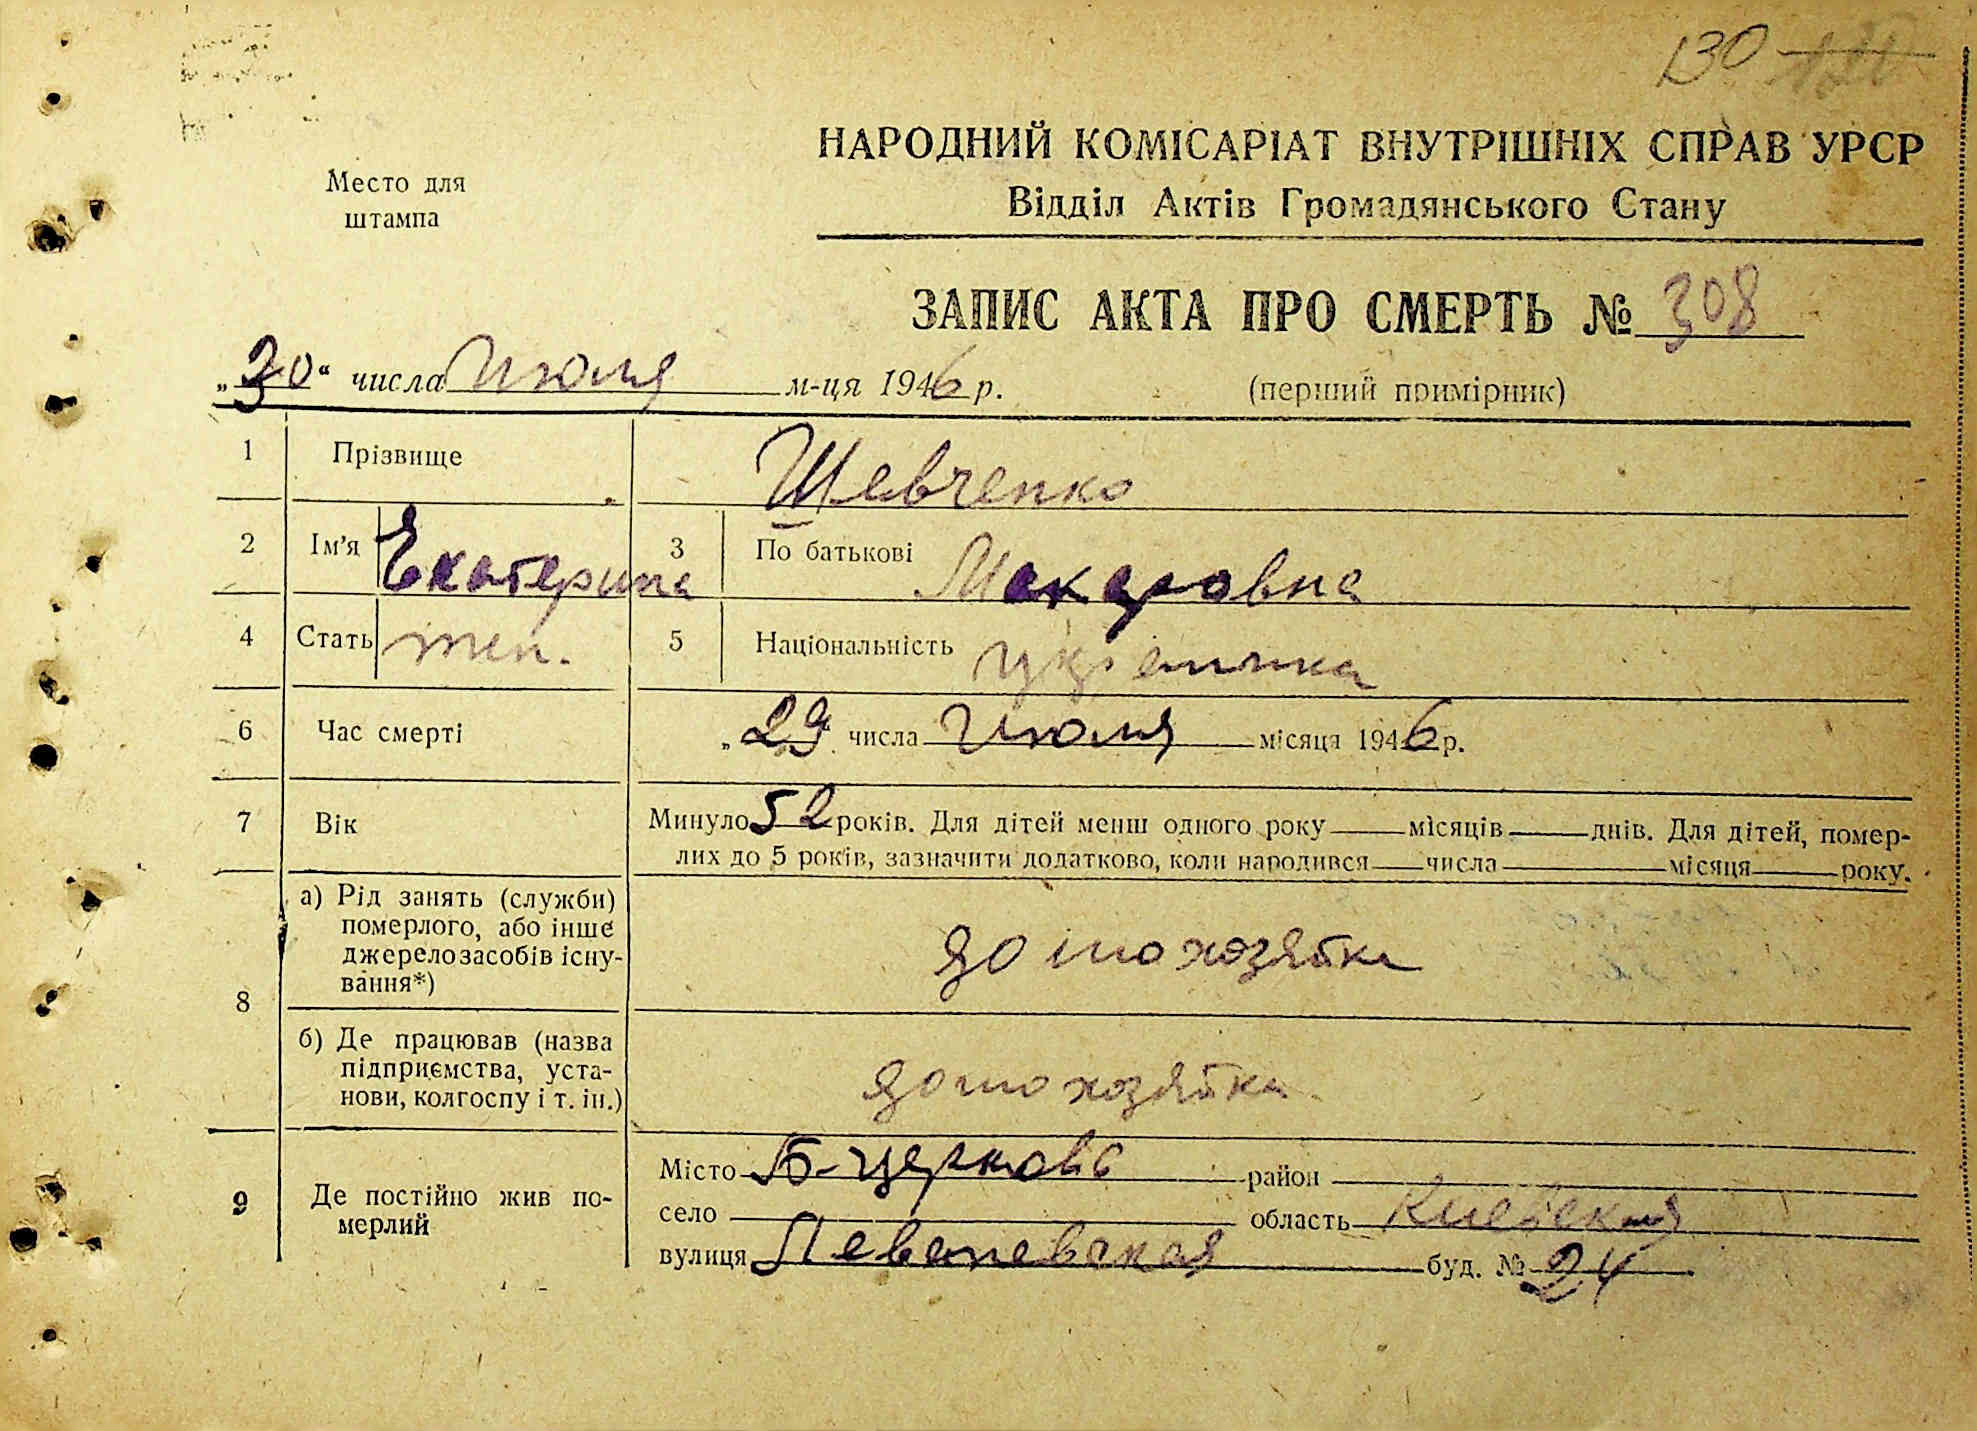 130
НАРОДНИЙ КОМІСАРІАТ ВНУТРІШНІХ СПРАВ УРСР
Место для
штампа
Відділ Актів Громадянського Стану
ЗАПИС АКТА ПРО СМЕРТЬ № 308
„30“ числа Июля м-ця 1946 р.
(перший примірник)
1 Прізвище Шевченко
2 Ім'я Екатерина 3 По батькові Макаровна
4 Стать жен. 5 Національність украинка
6 Час смерті „29“ числа Июля місяця 1946 р.
7 Вік Минуло 52 років. Для дітей менш одного року місяців днів. Для дітей, помер-
лих до 5 років, зазначити додатково, коли народився числа місяця року.
8 а) Рід занять (служби)
померлого, або інше
джерело засобів існу-
вання*)
домохозяйка
б) Де працював (назва
підприємства, уста-
нови, колгоспу і т. ін.)
домохозяйка
9 Де постійно жив по-
мерлий
Місто Б-церковь район
село область Киевская
вулиця буд. № 24